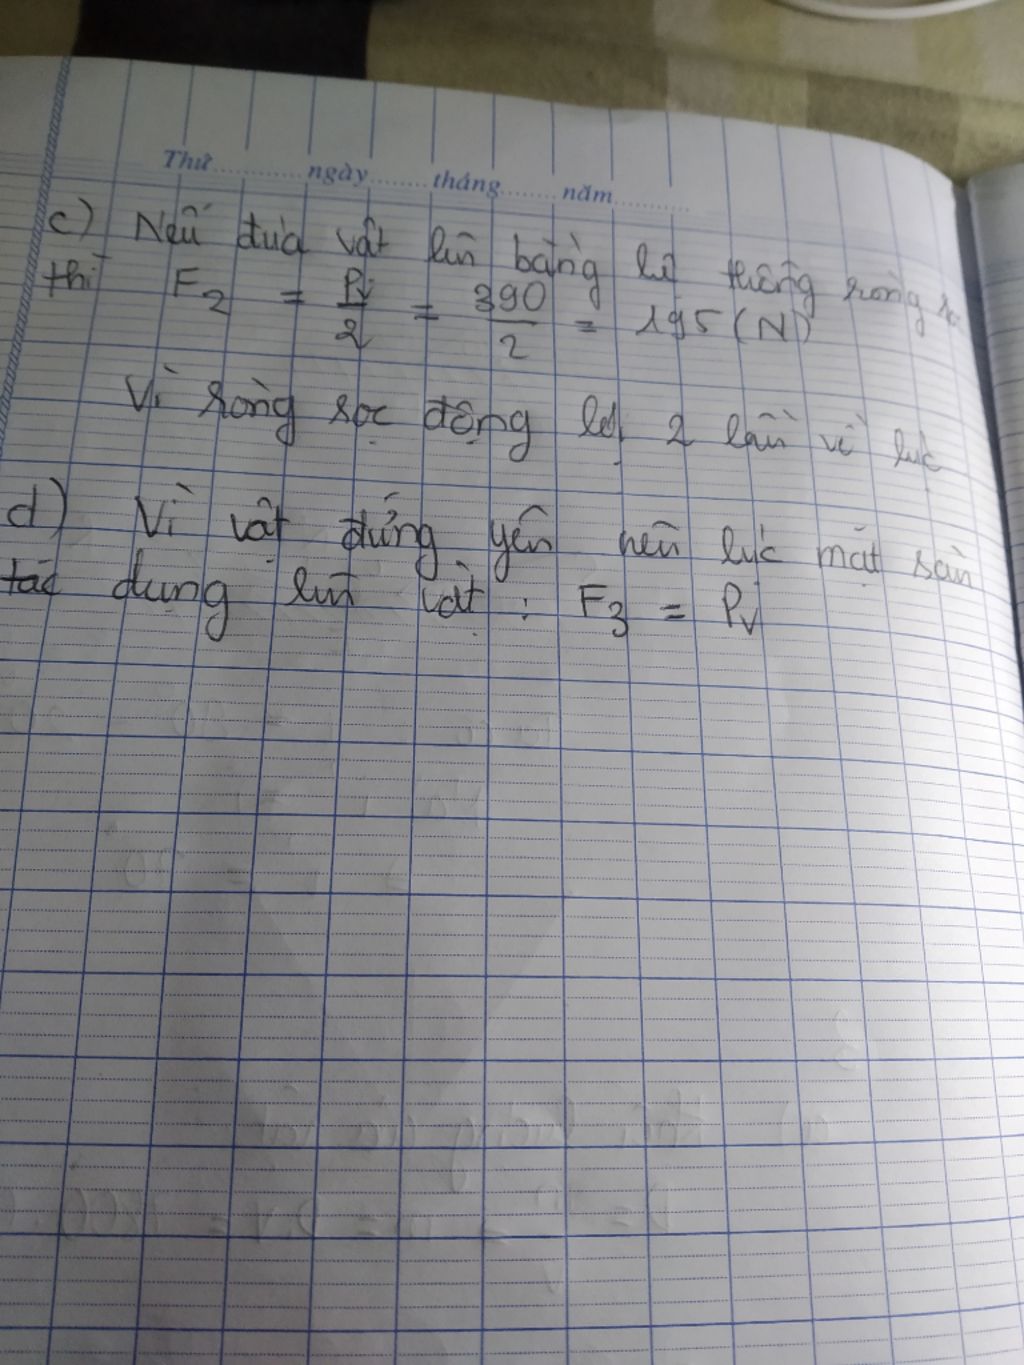 Thứ.............ngày........tháng........năm...........
c) Nếu đưa vật lên bằng hệ thống ròng rọc
thì F2 = Pv/2 = 390/2 = 195 (N)
Vì ròng rọc động lợi 2 lần về lực
d) Vì vật đứng yên nên lực mặt sàn
tác dụng lên vật : F3 = Pv